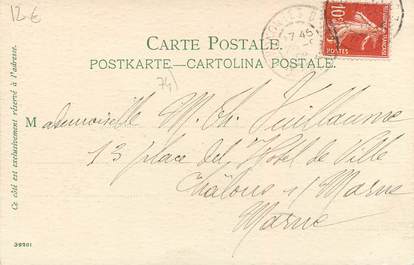 12€
CARTE POSTALE.
POSTKARTE—CARTOLINA POSTALE.
74
7 45
10c
POSTES
Ce côté est exclusivement réservé à l'adresse.
Mademoiselle M. Th. Vuillaume
13 place de l'Hotel de Ville
Châlons s/ Marne
Marne